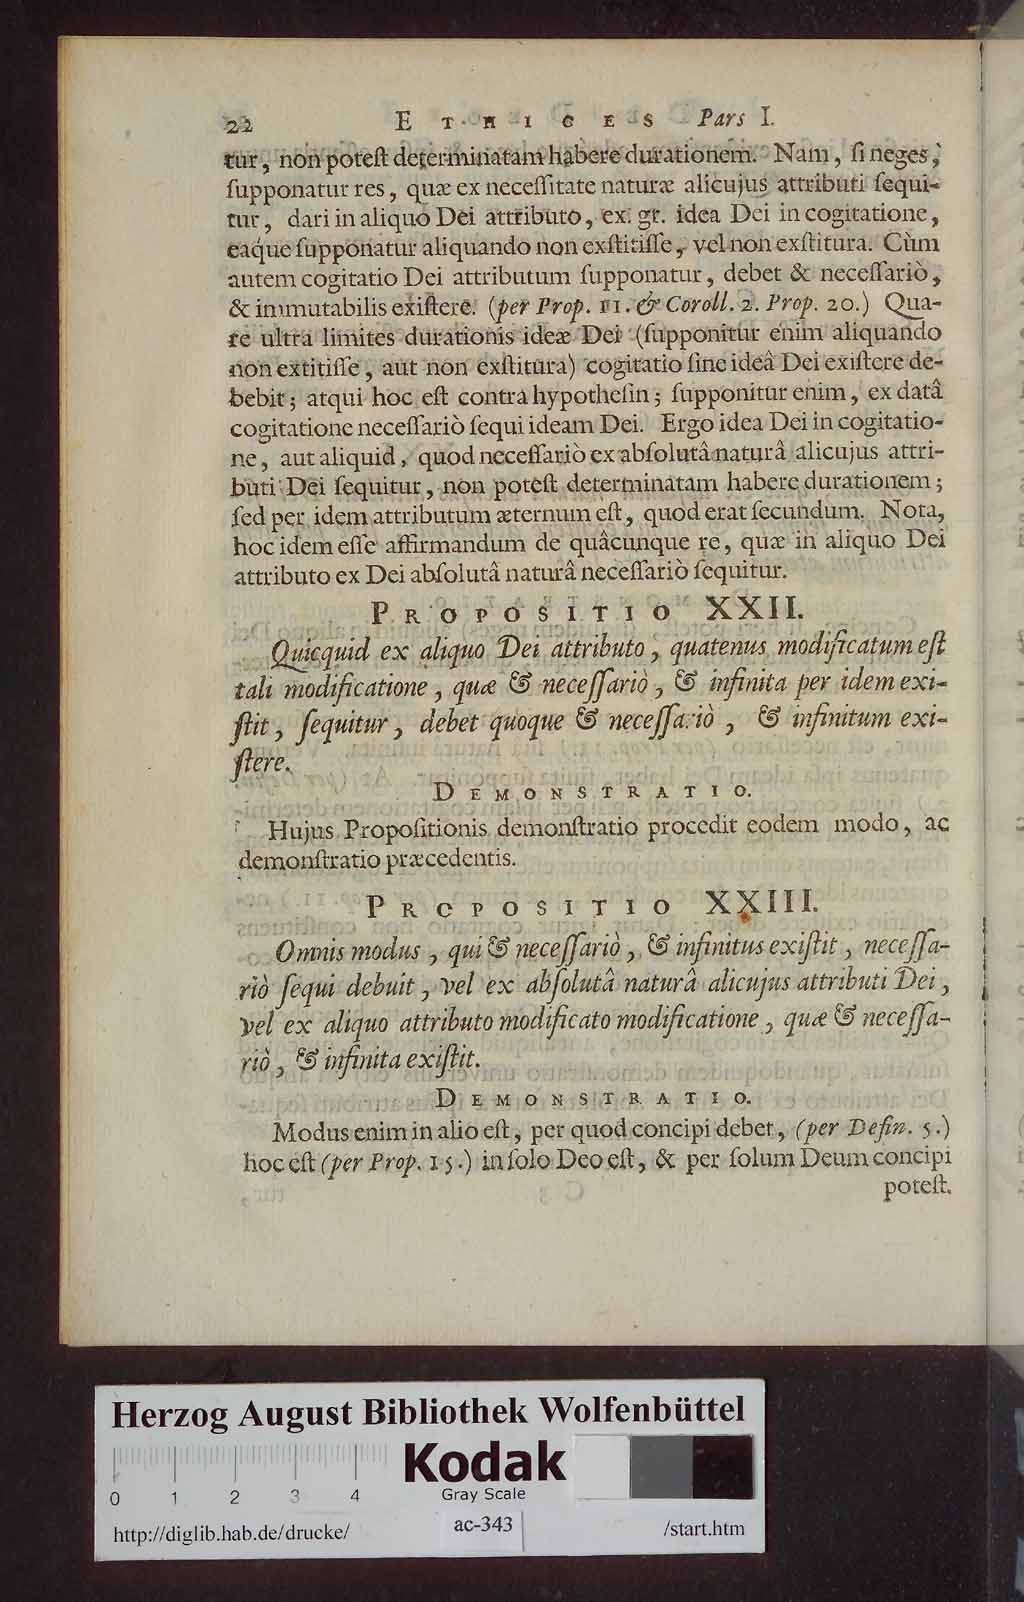 22 ETHICES Pars I.
tur, non poteſt determinatam habere durationem. Nam, ſi neges,
ſupponatur res, quæ ex neceſſitate naturæ alicujus attributi ſequi-
tur, dari in aliquo Dei attributo, ex. gr. idea Dei in cogitatione,
eaque ſupponatur aliquando non exſtitiſſe, vel non exſtitura. Cùm
autem cogitatio Dei attributum ſupponatur, debet & neceſſariò,
& immutabilis exiſtere. (per Prop. 11. & Coroll. 2. Prop. 20.) Qua-
re ultra limites durationis ideæ Dei (ſupponitur enim aliquando
non extitiſſe, aut non exſtitura) cogitatio ſine ideâ Dei exiſtere de-
bebit; atqui hoc eſt contra hypotheſin; ſupponitur enim, ex datâ
cogitatione neceſſariò ſequi ideam Dei. Ergo idea Dei in cogitatio-
ne, aut aliquid, quod neceſſariò ex abſolutâ naturâ alicujus attri-
buti Dei ſequitur, non poteſt determinatam habere durationem;
ſed per idem attributum æternum eſt, quod erat ſecundum. Nota,
hoc idem eſſe affirmandum de quâcunque re, quæ in aliquo Dei
attributo ex Dei abſolutâ naturâ neceſſariò ſequitur.
PROPOSITIO XXII.
Quicquid ex aliquo Dei attributo, quatenus modificatum eſt
tali modificatione, quæ & neceſſariò, & infinita per idem exi-
ſtit, ſequitur, debet quoque & neceſſariò, & infinitum exi-
ſtere.
DEMONSTRATIO.
Hujus Propoſitionis demonſtratio procedit eodem modo, ac
demonſtratio præcedentis.
PROPOSITIO XXIII.
Omnis modus, qui & neceſſariò, & infinitus exiſtit, neceſſa-
riò ſequi debuit, vel ex abſolutâ naturâ alicujus attributi Dei,
vel ex aliquo attributo modificato modificatione, quæ & neceſſa-
riò, & infinita exiſtit.
DEMONSTRATIO.
Modus enim in alio eſt, per quod concipi debet, (per Defin. 5.)
hoc eſt (per Prop. 15.) in ſolo Deo eſt, & per ſolum Deum concipi
poteſt.
Herzog August Bibliothek Wolfenbüttel
Kodak
Gray Scale
0 1 2 3 4
http://diglib.hab.de/drucke/ ac-343 /start.htm